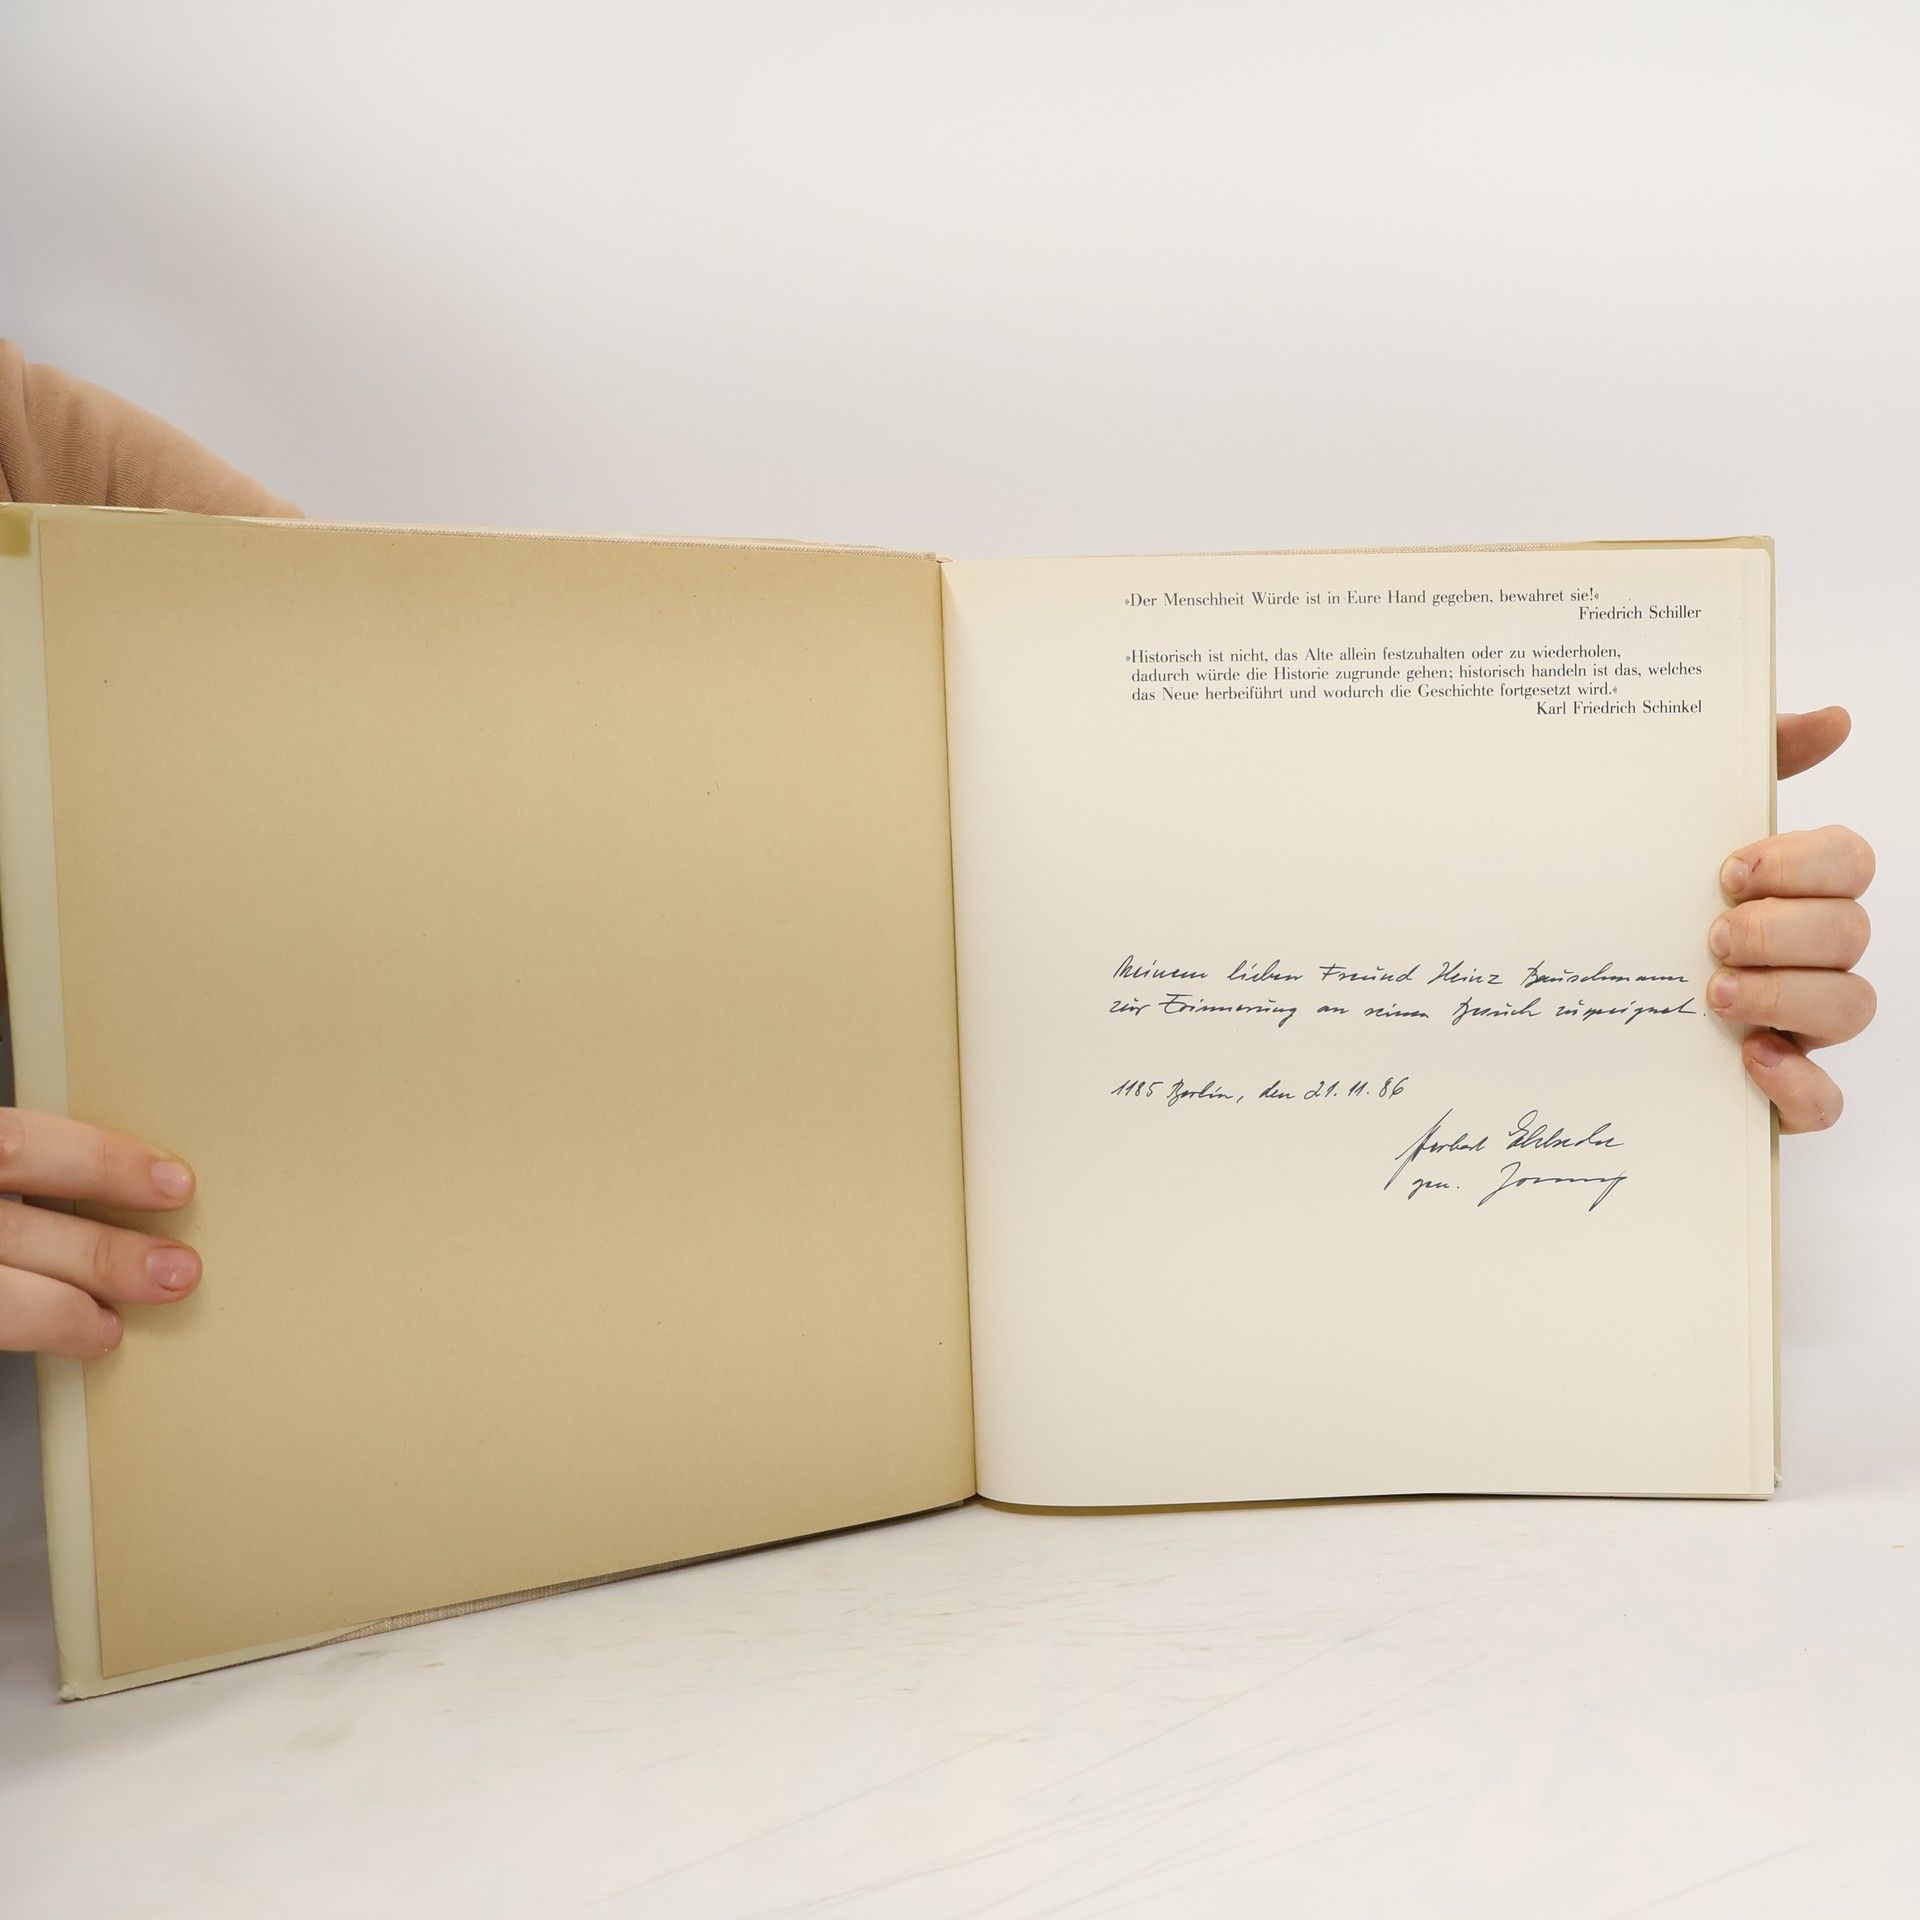 »Der Menschheit Würde ist in Eure Hand gegeben, bewahret sie!«
Friedrich Schiller
»Historisch ist nicht, das Alte allein festzuhalten oder zu wiederholen,
dadurch würde die Historie zugrunde gehen; historisch handeln ist das, welches
das Neue herbeiführt und wodurch die Geschichte fortgesetzt wird.«
Karl Friedrich Schinkel
Meinem lieben Freund Heinz Bauschmann
zur Erinnerung an seinen Besuch zugeeignet.
1185 Berlin, den 21.11.86
Herbert
gen.